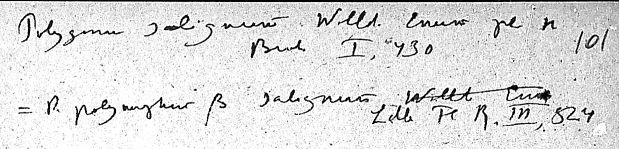 Polygonum salignum Willd. Enum pl H
Berol I, 430 101
= P. polymorphum β salignum Willd Enum
Ldb Fl R. III, 524